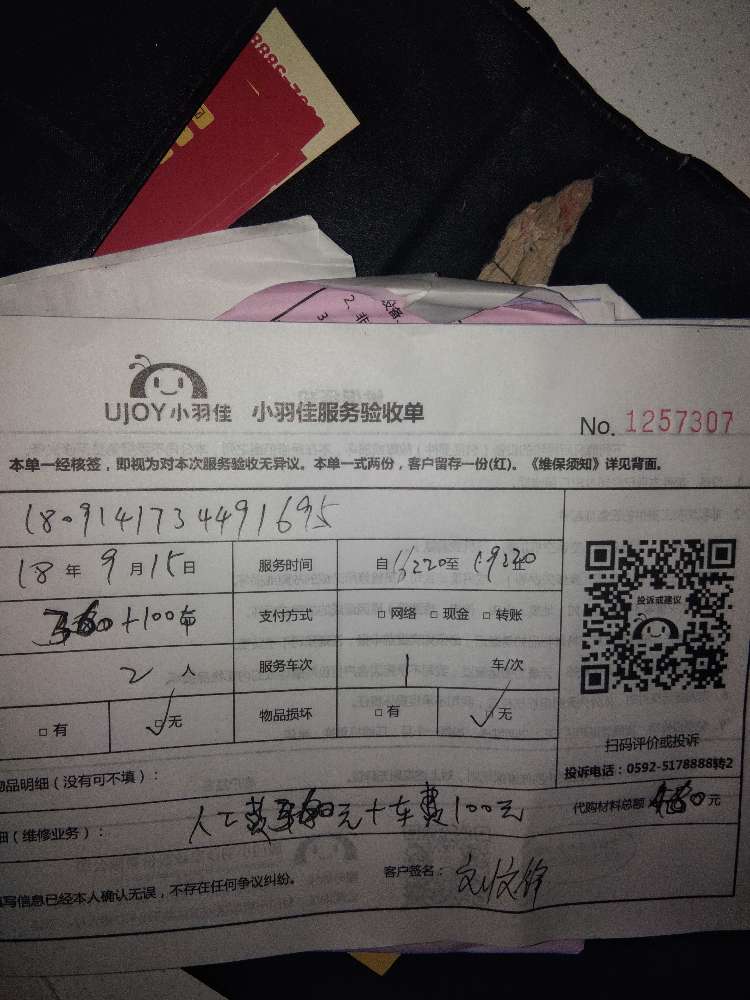 2、非
3
UJOY小羽佳 小羽佳服务验收单
No. 1257307
本单一经核签，即视为对本次服务验收无异议。本单一式两份，客户留存一份(红)。《维保须知》详见背面。
1809141734491695
18 年 9 月 15 日 服务时间 自 至
+100车 支付方式 □ 网络 □ 现金 □ 转账
2 人 服务车次 1 车/次
□ 有 □ 无 物品损坏 □ 有 □ 无
投诉或建议
扫码评价或投诉
投诉电话：0592-5178888转2
物品明细（没有可不填）：
细（维修业务）： 人工费 元+车费100元
代购材料总额 元
填写信息已经本人确认无误，不存在任何争议纠纷。 客户签名：